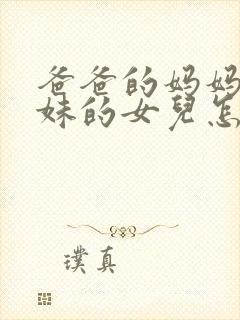 爸爸的妈妈
妹的女兒怎
璞真